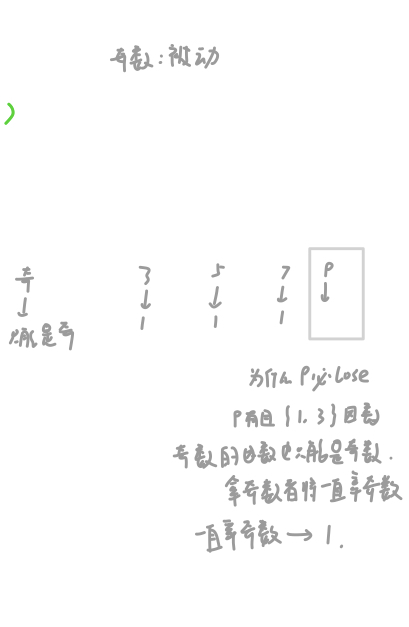 奇数：被动
奇 3 5 7 P
↓ ↓ ↓ ↓ ↓
只能是奇 1 1 1
为什么 P 必 Lose
P 有且 {1, 3} 因数
奇数的因数也只能是奇数.
拿奇数者将一直拿奇数
一直拿奇数 → 1.